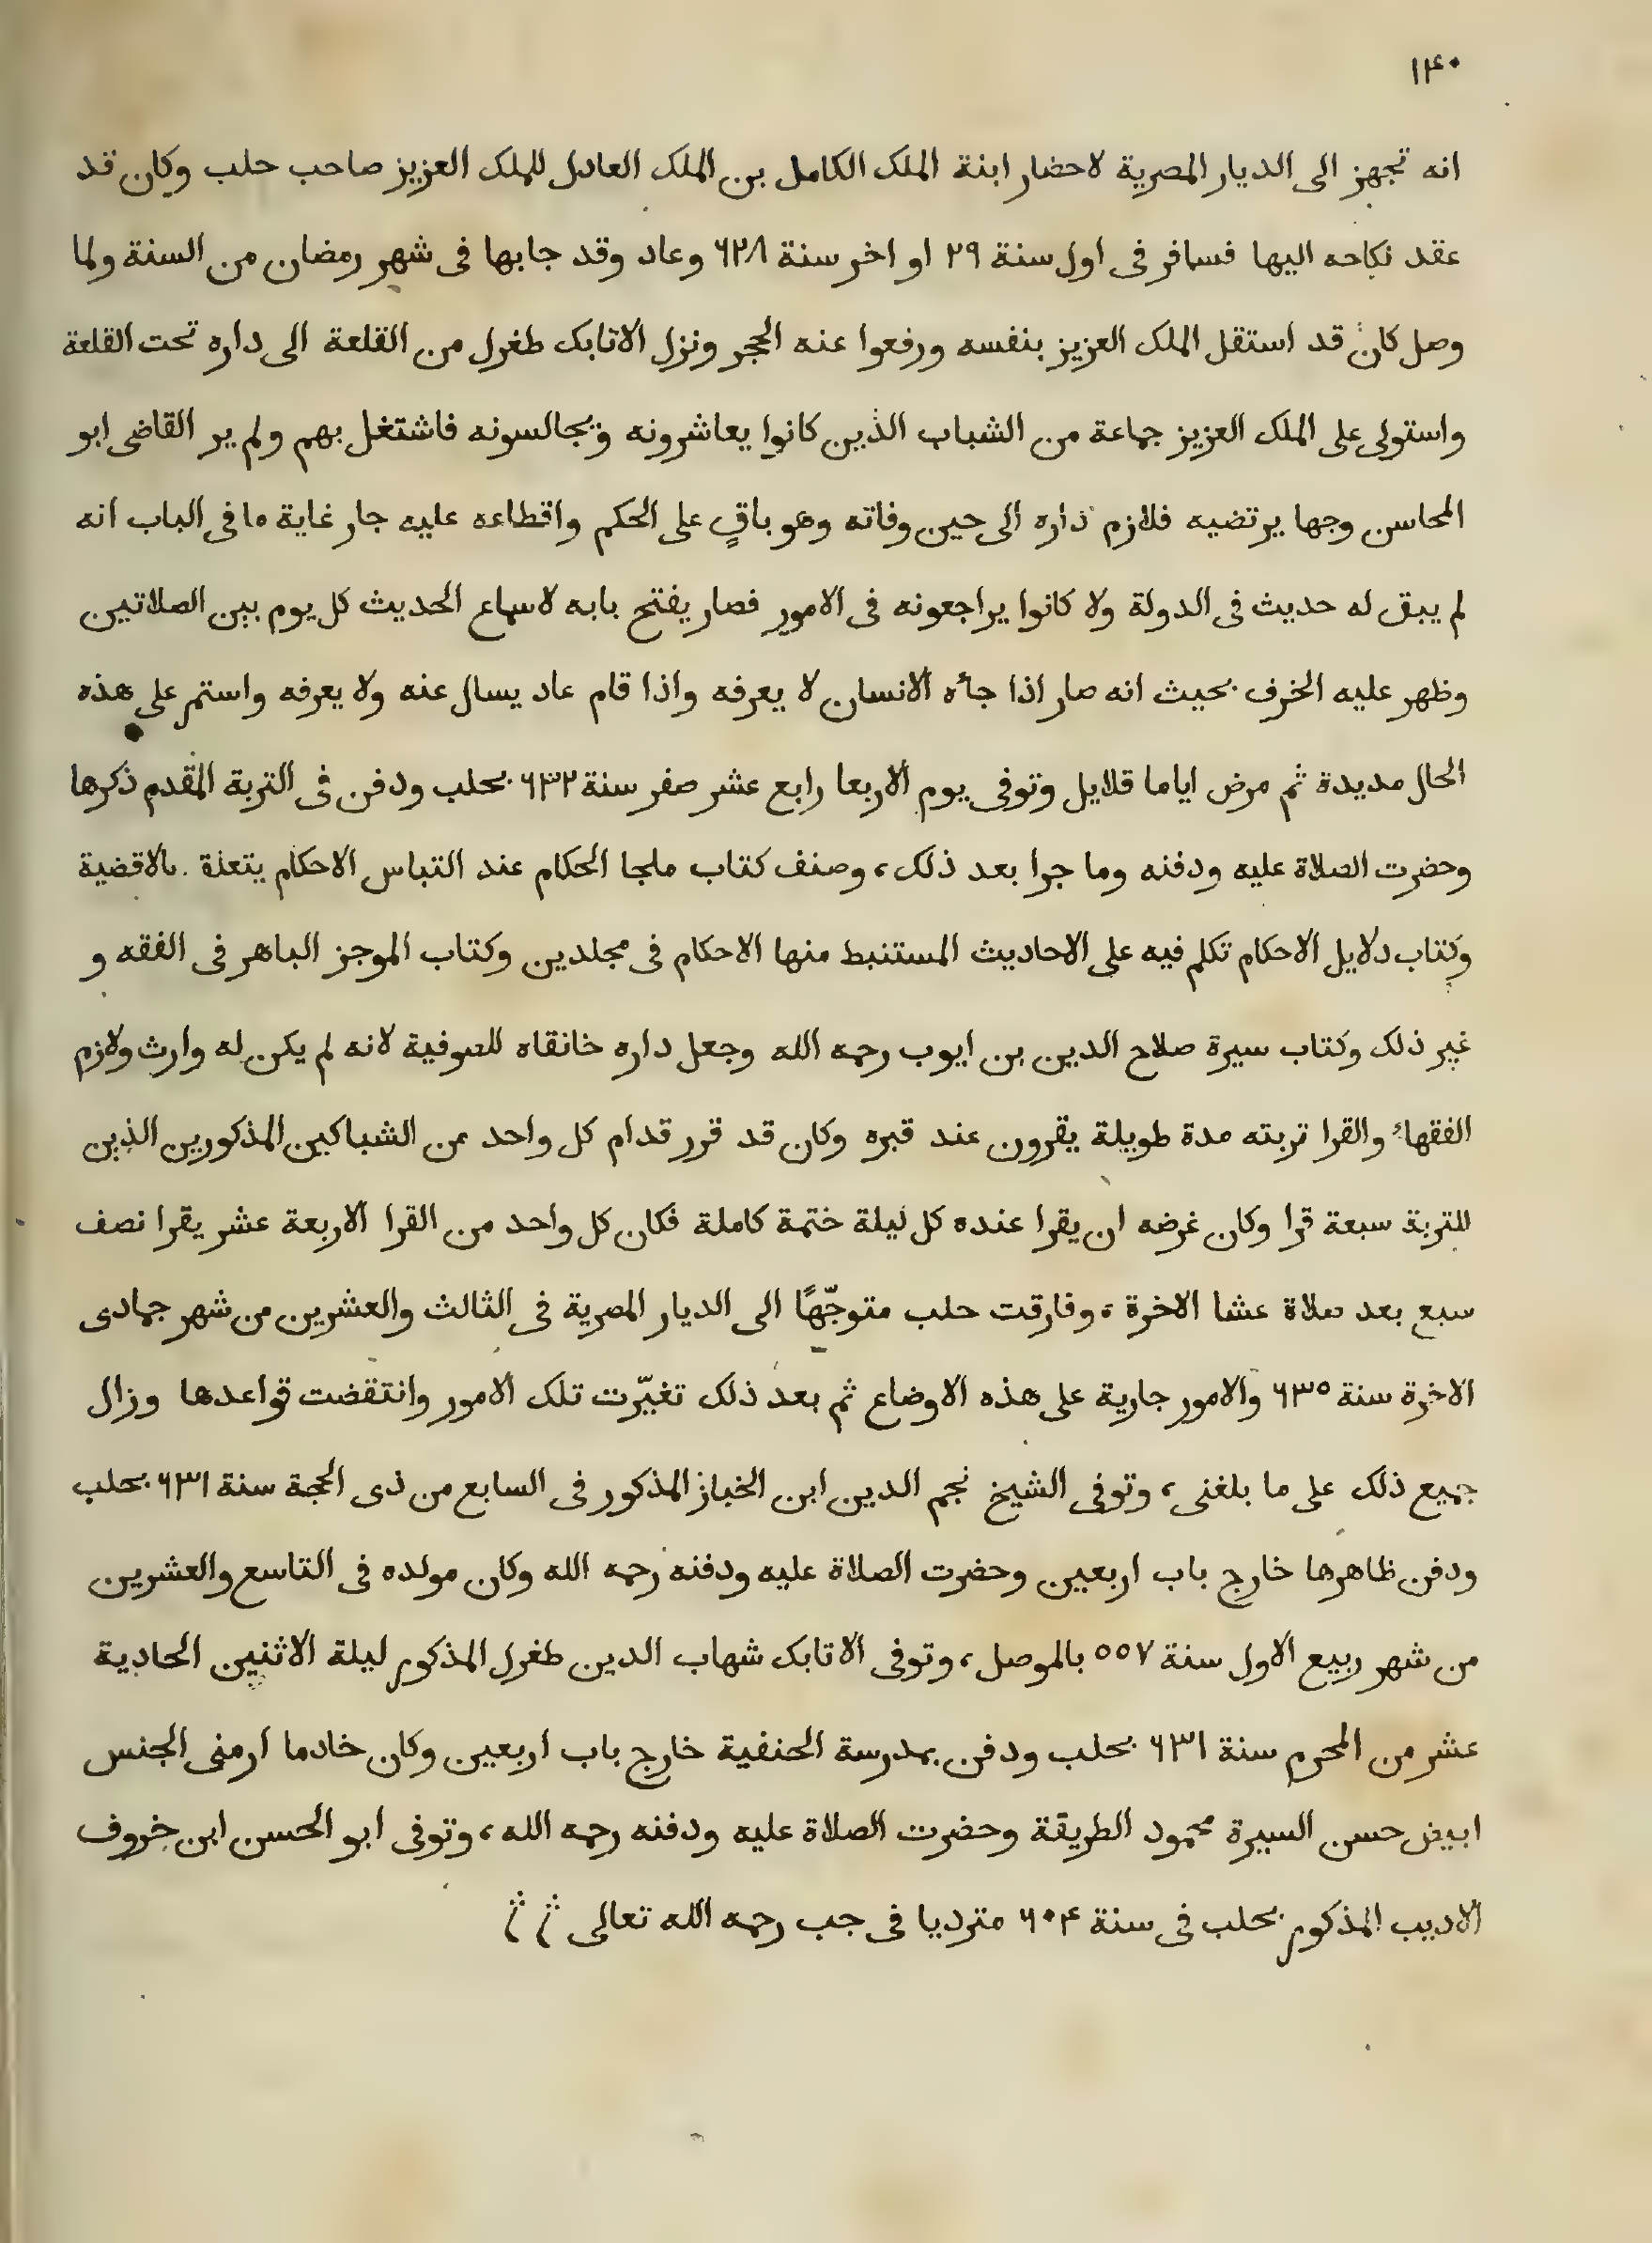 ١٤٠
انه تجهز الى الديار المصرية لاحضار ابنة الملك الكامل بن الملك العادل للملك العزيز صاحب حلب وكان قد
عقد نكاحه اليها فسافر فى اول سنة ٢٩ او اخر سنة ٦٢٨ وعاد وقد جا بها فى شهر رمضان من السنة ولما
وصل كان قد استقل الملك العزيز بنفسه ورفعوا عنه الحجر ونزل الاتابك طغرل من القلعة الى داره تحت القلعة
واستولى على الملك العزيز جماعة من الشباب الذين كانوا يعاشرونه ويجالسونه فاشتغل بهم ولم ير القاضى ابو
المحاسن وجها يرتضيه فلازم داره الى حين وفاته وهو باقٍ على الحكم واقطاعه عليه جار غاية ما فى الباب انه
لم يبق له حديث فى الدولة ولا كانوا يراجعونه فى الامور فصار يفتح بابه لاسماع الحديث كل يوم بين الصلاتين
وظهر عليه الخرف بحيث انه صار اذا جاه الانسان لا يعرفه واذا قام عاد يسال عنه ولا يعرفه واستمر على هذه
الحال مديدة ثم مرض اياما قلايل وتوفى يوم الاربعا رابع عشر صفر سنة ٦٣٢ بحلب ودفن فى التربة المقدم ذكرها
وحضرت الصلاة عليه ودفنه وما جرا بعد ذلك ، وصنف كتاب ملجا الحكام عند التباس الاحكام يتعلة بالاقضية
وكتاب دلايل الاحكام تكلم فيه على الاحاديث المستنبط منها الاحكام فى مجلدين وكتاب الموجز الباهر فى الفقه و
غير ذلك وكتاب سيرة صلاح الدين بن ايوب رحمه الله وجعل داره خانقاه للصوفية لانه لم يكن له وارث ولازم
الفقهاء والقرا تربته مدة طويلة يقرون عند قبره وكان قد قرر قدام كل واحد من الشباكين المذكورين الذين
للتربة سبعة قرا وكان غرضه ان يقرا عنده كل ليلة ختمة كاملة فكان كل واحد من القرا الاربعة عشر يقرا نصف
سبع بعد صلاة عشا الاخرة ، وفارقت حلب متوجّهًا الى الديار المصرية فى الثالث والعشرين من شهر جمادى
الاخرة سنة ٦٣٥ والامور جارية على هذه الاوضاع ثم بعد ذلك تغيّرت تلك الامور وانتقضت قواعدها وزال
جميع ذلك على ما بلغنى ، وتوفى الشيخ نجم الدين ابن الخباز المذكور فى السابع من ذى الحجة سنة ٦٣١ بحلب
ودفن ظاهرها خارج باب اربعين وحضرت الصلاة عليه ودفنه رحمه الله وكان مولده فى التاسع والعشرين
من شهر ربيع الاول سنة ٥٥٧ بالموصل ، وتوفى الاتابك شهاب الدين طغرل المذكور ليلة الاثنين الحادية
عشر من المحرم سنة ٦٣١ بحلب ودفن بمدرسة الحنفية خارج باب اربعين وكان خادما ارمنى الجنس
ابيض حسن السيرة محمود الطريقة وحضرت الصلاة عليه ودفنه رحمه الله ، وتوفى ابو الحسن ابن خروف
الاديب المذكور بحلب فى سنة ٦٠٤ مترديا فى جب رحمه الله تعالى